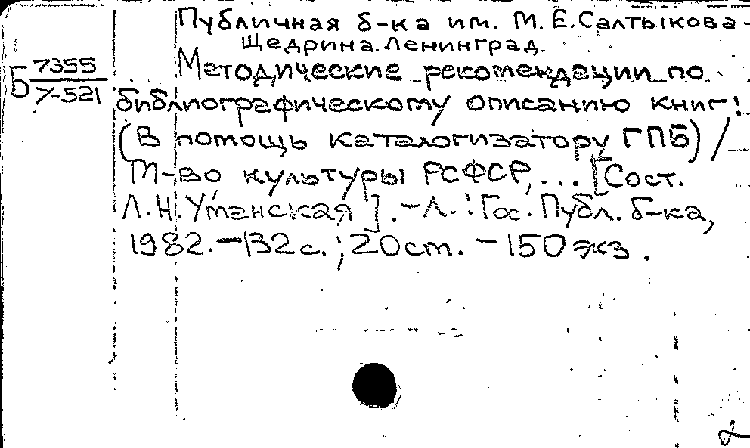 Публичная б-ка им. М. Е. Салтыкова-
Щедрина. Ленинград.
Б 7355
7-521
Методические рекомендации по
библиографическому описанию книг!
(В помощь каталогизатору ГПБ) /
М-во культуры РСФСР, ... [Сост.
Л. Н. Уманская]. - Л.: Гос. Публ. б-ка,
1982. - 132 с.; 20 ст. - 150 экз.